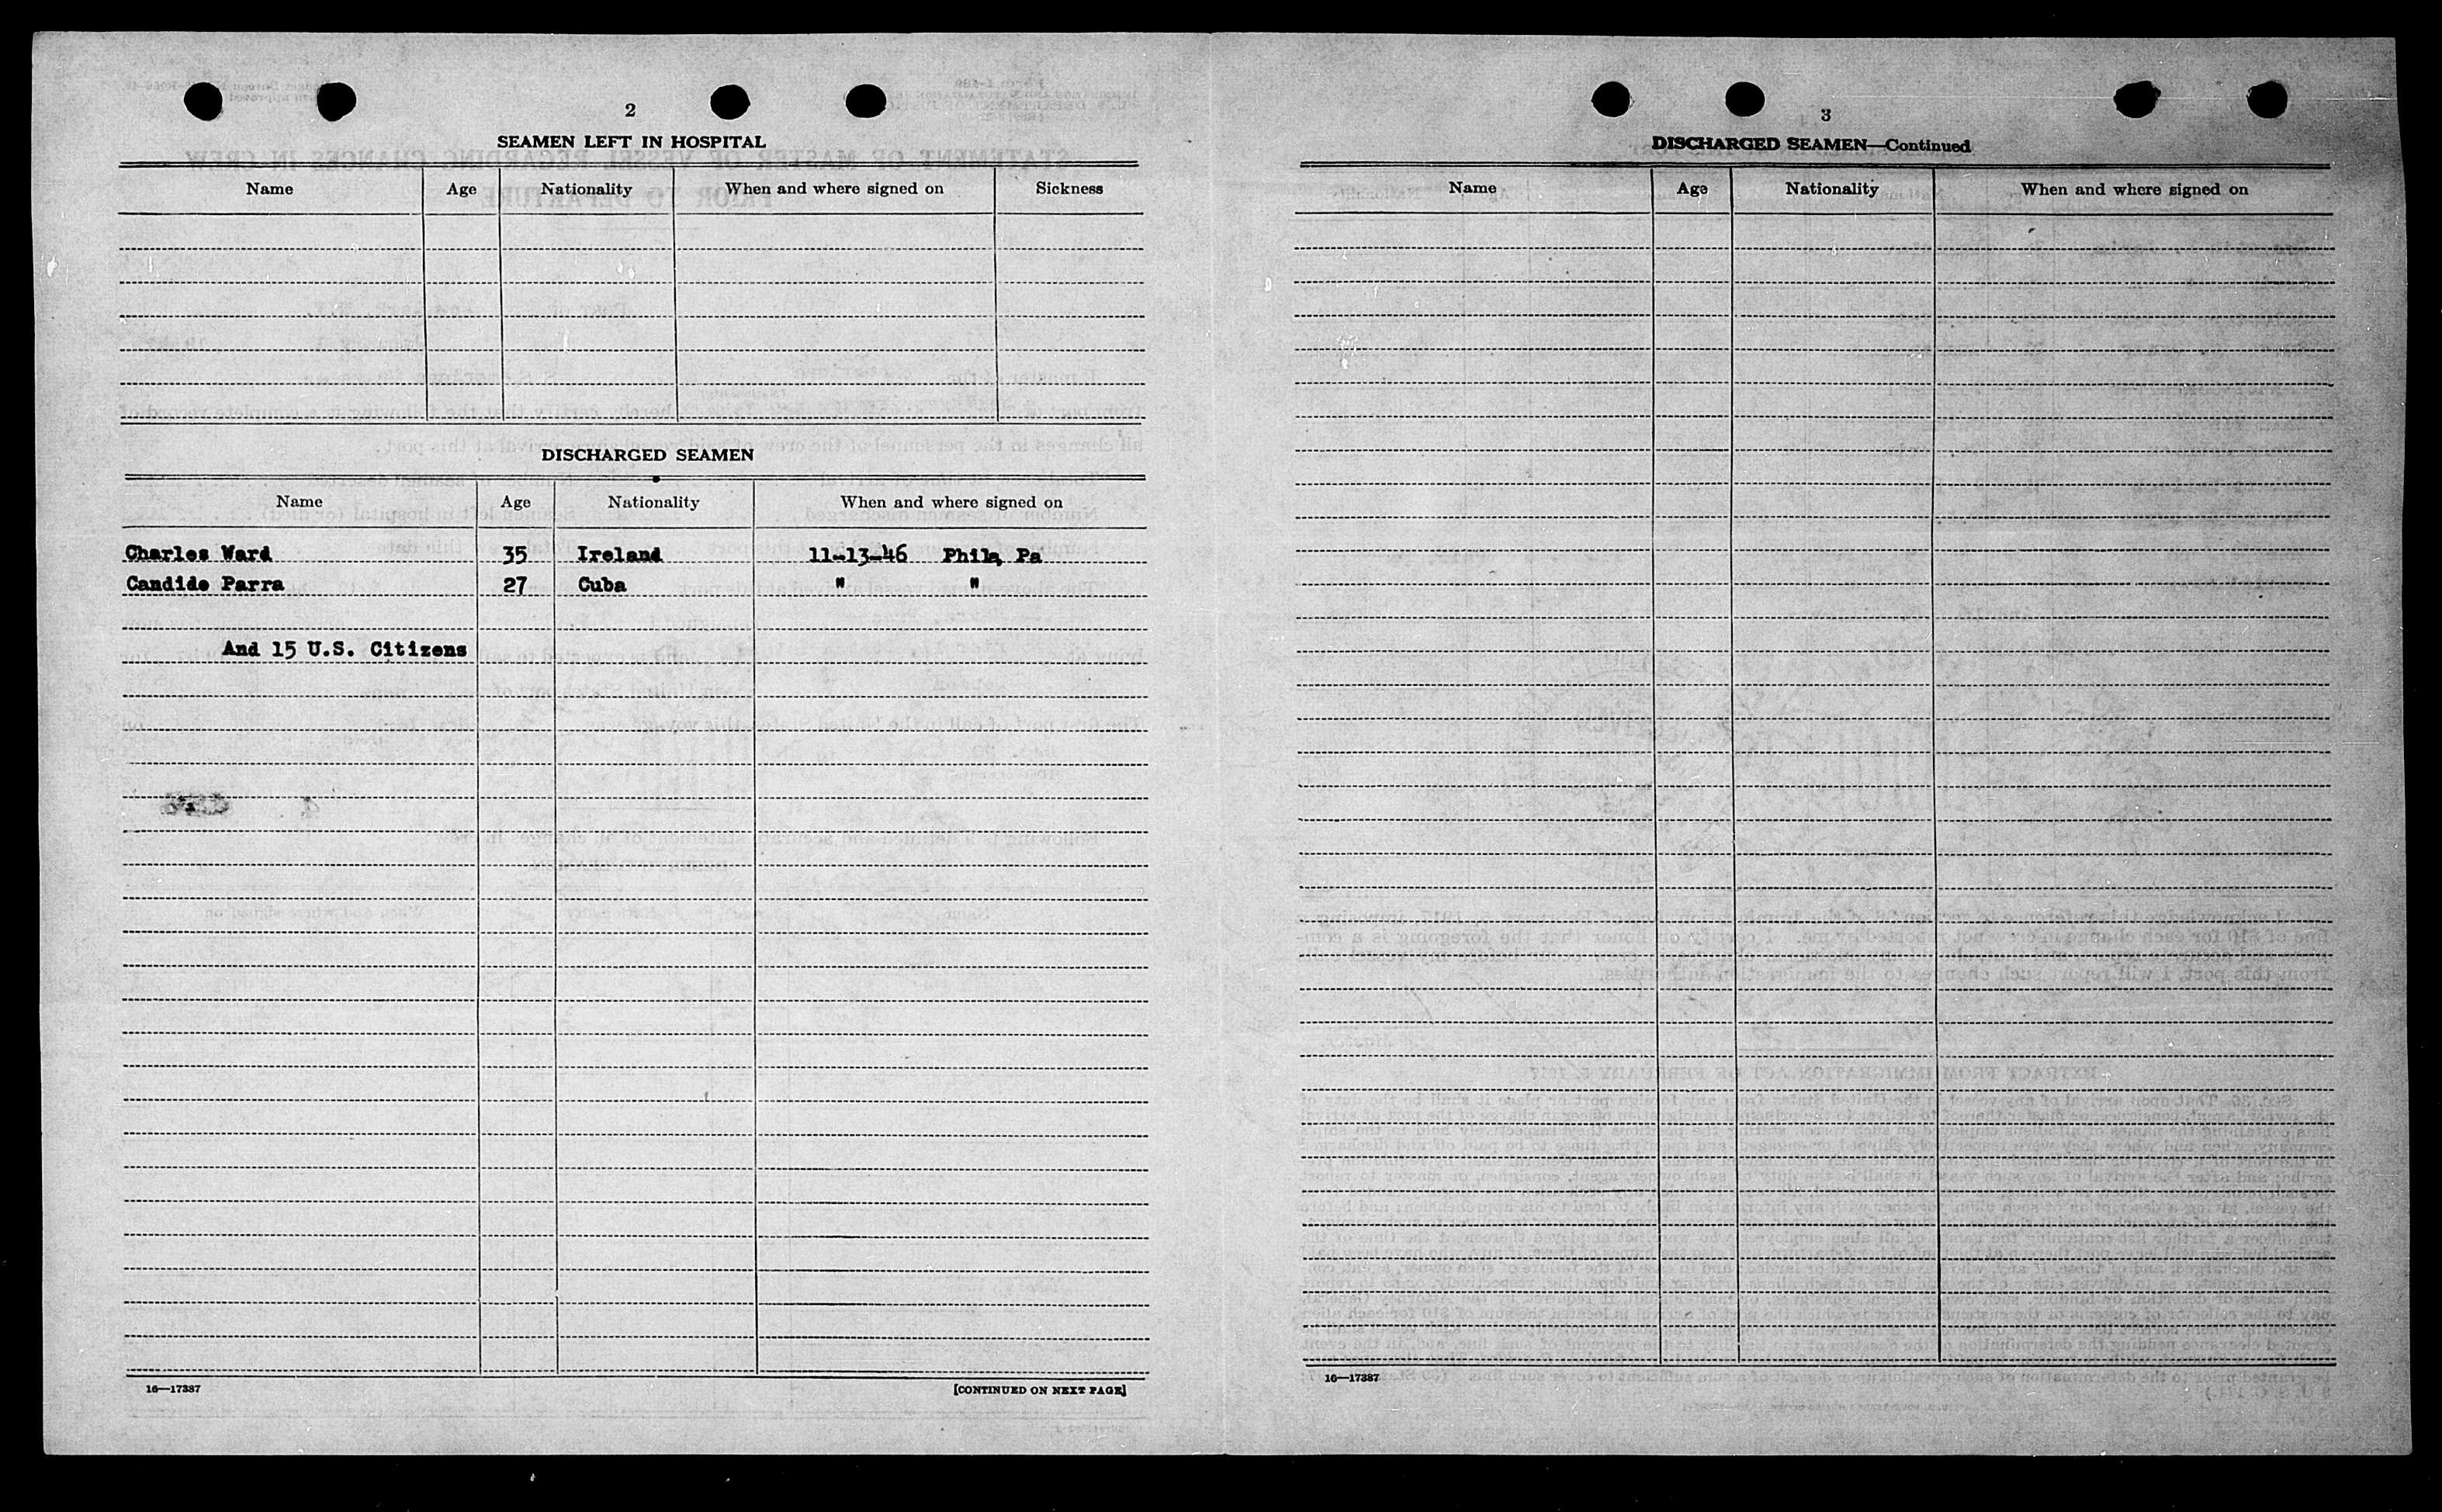 2
SEAMEN LEFT IN HOSPITAL
Name Age Nationality When and where signed on Sickness
DISCHARGED SEAMEN
Name Age Nationality When and where signed on
Charles Ward 35 Ireland 11-13-46 Phila, Pa
Candido Parra 27 Cuba " "
And 15 U.S. Citizens
16—17387 [CONTINUED ON NEXT PAGE]
3
DISCHARGED SEAMEN—Continued
Name Age Nationality When and where signed on
16—17387